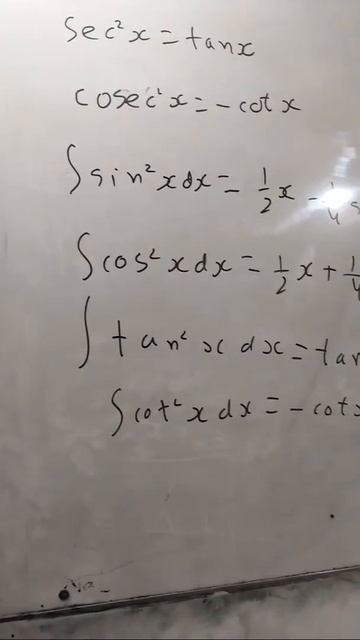 sec²x = tanx
cosec²x = -cot x
∫sin²x dx = 1/2 x - 1/4 s
∫cos²x dx = 1/2 x + 1/4
∫tan²x dx = tan
∫cot²x dx = -cotx